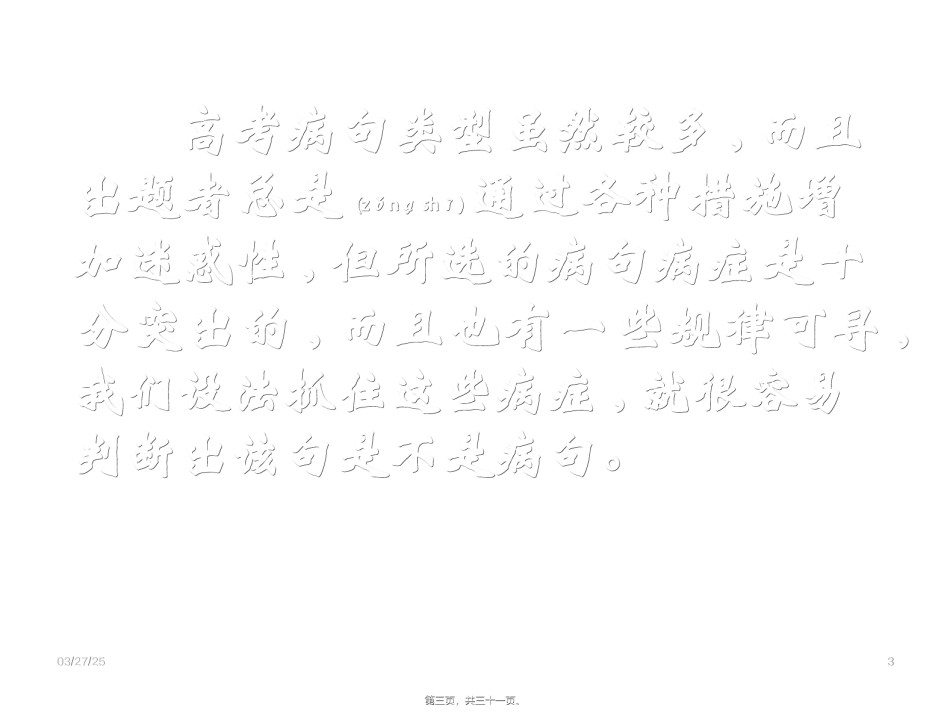 高考病句类型虽然较多，而且
出题者总是(zǒngshì)通过各种措施增
加迷惑性，但所选的病句病症是十
分突出的，而且也有一些规律可寻，
我们设法抓住这些病症，就很容易
判断出该句是不是病句。
03/27/25
3
第三页，共三十一页。